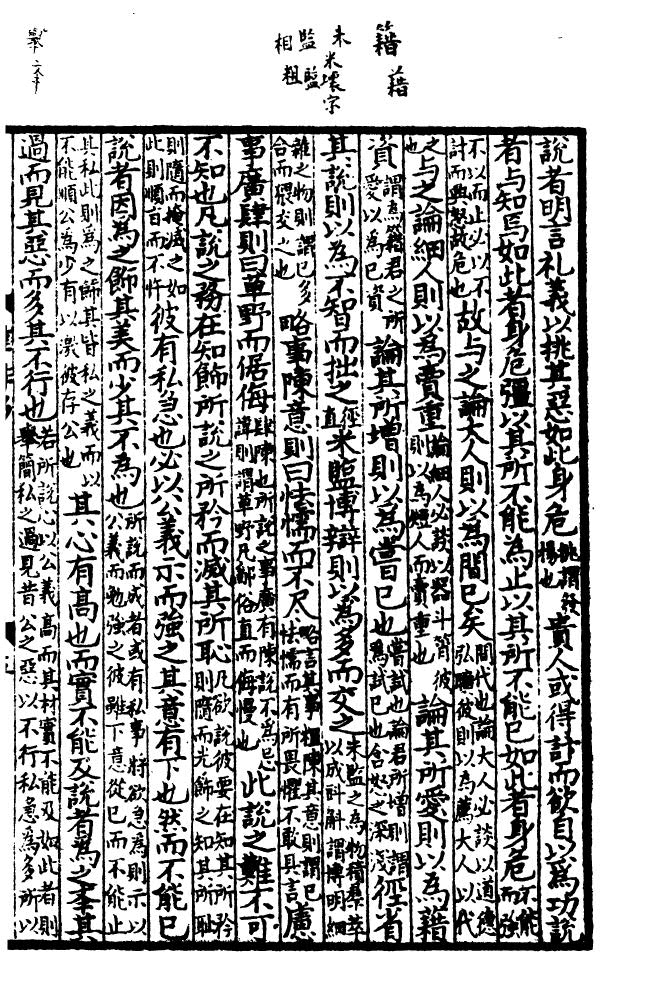 籍 藉
未米壞字
監 盬
相 粗
說者明言礼義以挑其惡如此身危挑謂發楊也貴人或得計而欲自以為功說
者与知焉如此者身危彊以其所不能為止以其所不能已如此者身危不能而強
不以而止必以不計而興怒故危也故与之論大人則以為間已矣間代也論大人必談以道德弘曠彼則以為薦大人以代
之也与之論細人則以為賣重論細人必談以器斗筲彼則以為短人而賣重也論其所愛則以為籍
資謂為籍君之所愛以為已資論其所增則以為嘗已也嘗試也論君所增則謂為試已也含怒之深淺徑省
其説則以為不智而拙之徑直米盬博辯則以為多而交之未盬之為物積羣萃以成斛謂博明細
雜之物則謂已多合而猥交之也略事陳意則曰怯懦而不尽略言其事粗陳其意則謂已怯懦而有所畏懼不敢具言慮
事廣肆則曰草野而倨侮肆陳也所說之事廣有陳說不為忌諱則謂草野凡鄙俗直而侮慢也此說之難不可
不知也凡說之務在知飾所說之所矜而滅其所恥凡欲說彼要在知其所矜則隨而光飾之知其所恥
則隨而掩滅之如此則順旨而不忤彼有私急也必以公義示而強之其意有下也然而不能已
說者因為之飾其美而少其不為也所說而成者或有私事將欲急為則示以公義而勉強之彼雖下意從已而不能止
其私此則為之飾其皆私之義而以不能順公為少有以激彼存公也其心有高也而實不能及說者為之舉其
過而見其惡而多其不行也若所說心以公義高而其材實不能及如此者則舉簡私之過見昔公之惡以不行私急為多所以